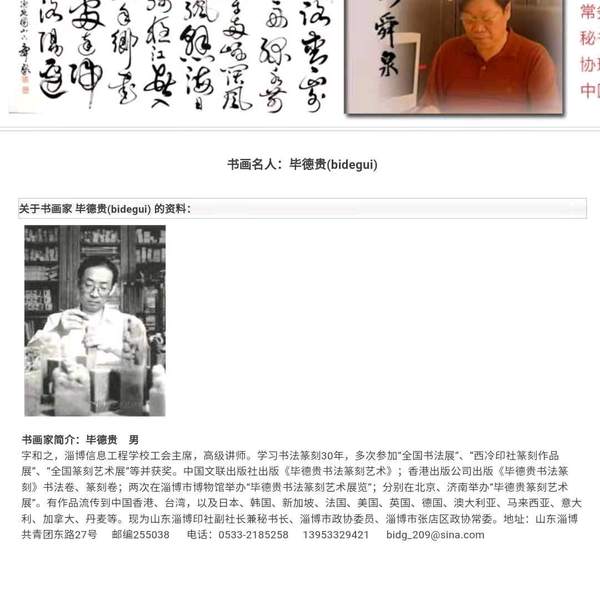 舜泉
常务
秘书
协理
中国
书画名人：毕德贵(bidegui)
关于书画家 毕德贵(bidegui) 的资料：
书画家简介：毕德贵　男
字和之，淄博信息工程学校工会主席，高级讲师。学习书法篆刻30年，多次参加"全国书法展"、"西冷印社篆刻作品
展"、"全国篆刻艺术展"等并获奖。中国文联出版社出版《毕德贵书法篆刻艺术》；香港出版公司出版《毕德贵书法篆
刻》书法卷、篆刻卷；两次在淄博市博物馆举办"毕德贵书法篆刻艺术展览"；分别在北京、济南举办"毕德贵篆刻艺术
展"。有作品流传到中国香港、台湾，以及日本、韩国、新加坡、法国、美国、英国、德国、澳大利亚、马来西亚、意大
利、加拿大、丹麦等。现为山东淄博印社副社长兼秘书长、淄博市政协委员、淄博市张店区政协常委。地址：山东淄博
共青团东路27号　 邮编255038　 电话：0533-2185258　 13953329421　 bidg_209@sina.com